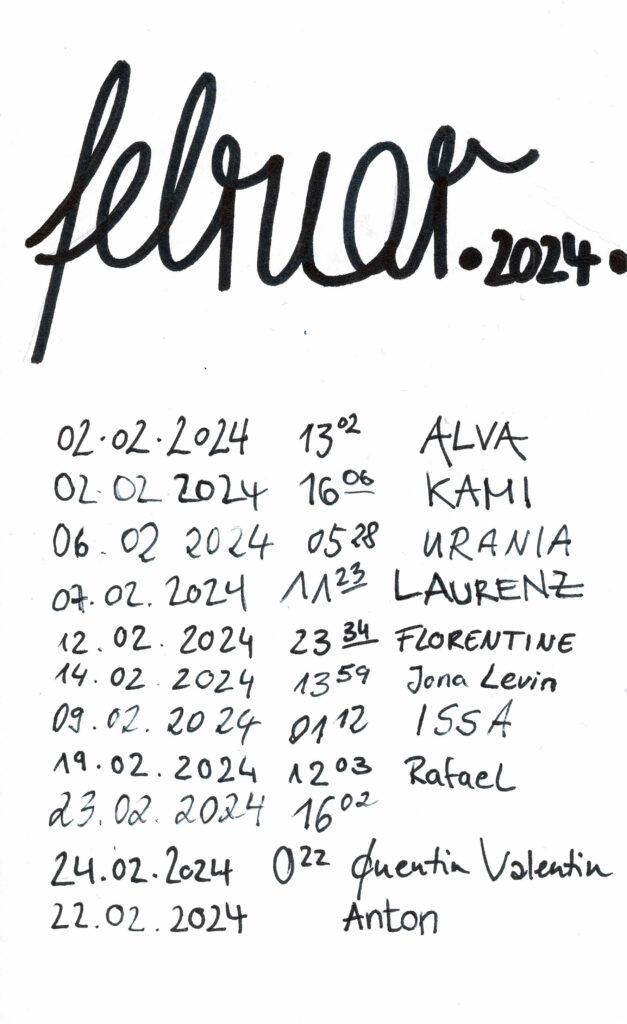 februar.2024.
02.02.2024 13 02 ALVA
02.02 2024 16 06 KAMI
06.02 2024 05 28 URANIA
07.02.2024 11 23 LAURENZ
12.02.2024 23 34 FLORENTINE
14.02.2024 13 59 Jona Levin
09.02.2024 01 12 ISSA
19.02.2024 12 03 Rafael
23.02.2024 16 02
24.02.2024 0 22 Quentin Valentin
22.02.2024 Anton